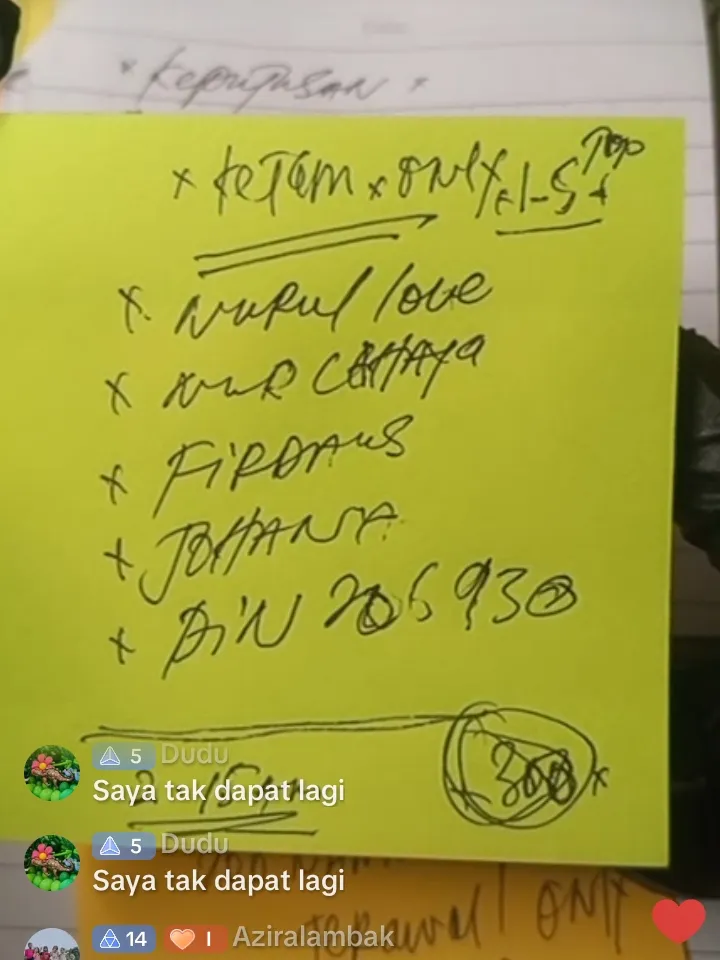 x KEPUTUSAN x
x KETAM x ONLY x 1-5 x TOP
x. NURUL love
x NUR CAHAYA
x FIRDAUS
x JOHANA
x AIN 206930
300 x
5 Dudu
Saya tak dapat lagi
5 Dudu
Saya tak dapat lagi
ONLY
14 1 Aziralambak